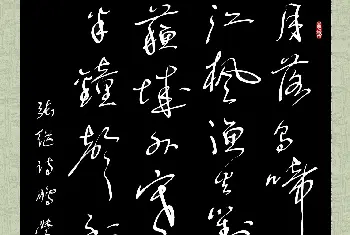 月落乌啼
江枫渔火对
蘇城外寒
半鐘声到
张继诗